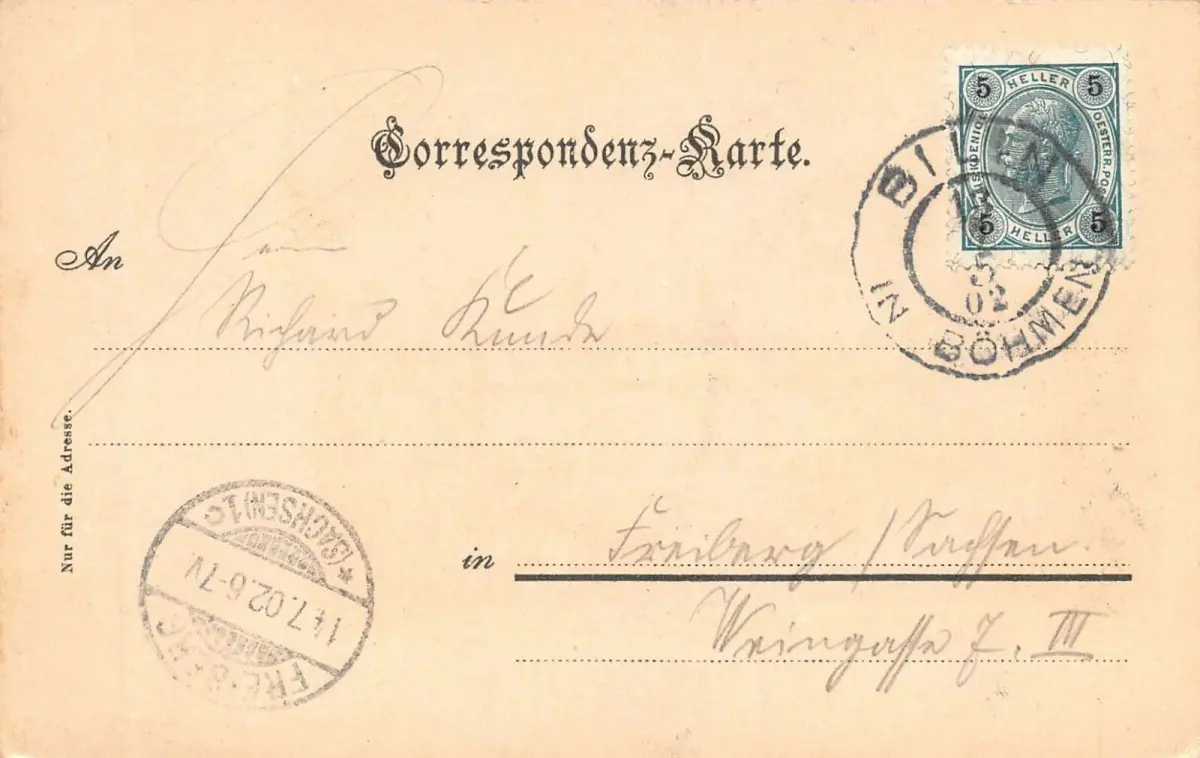 Correspondenz-Karte.
5 HELLER 5
KAISKOENIGL. OESTERR. POST
5 HELLER 5
BILIN
02
IN BÖHMEN
An
Herrn
Richard Kunde
Nur für die Adresse.
in Freiberg / Sachsen.
Weingasse 7. III
* (SACHSEN) 1 c
14.7.02.6-7V
FREIBERG